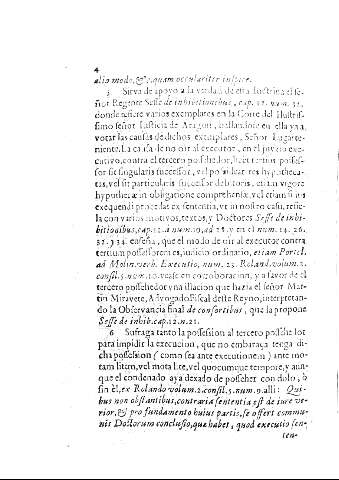 4
alio modo, & quam oculariter inspice.
5 Sirva de apoyo a la verdad de esta Ilustrin el se-
ñor Regente Sesse de inhibitionibus, cap. 12. num. 32.
donde refiere varios exemplares en la Corte del Ilustris-
simo señor Iusticia de Aragon, hallandose en ella ya a
votar las causas de dichos exemplares, Señor Lugarte-
niente. La causa de no oir al executor, en el juyzio exe-
cutivo, contra el tercero possehedor, hic tertius posses-
sor sit singularis successor, vel possideat res hypotheca-
tas, vel sit particularis successor debitoris, etiam vigore
hypothecæ in obligatione comprehensæ, vel etiam si ius
exequendi procedat ex sententia, ut in nostro casu, refie-
la con varios motivos, textos, y Doctores Sesse de inhi-
bitionibus, cap. 12. a num. 19. ad 28. y en el num. 14. 26.
32. 334. enseña, que el modo de oir al executor contra
tertium possessorem es, iudicio ordinario, etiam Portol.
ad Molin. verb. Executio, num. 23. Roland. volum. 2.
consil. 5. num. 10. vease en corroboracion, y a favor de el
tercero possehedor vna illacion que hazia el señor Mar-
tin Miravete, Advogado Fiscal deste Reyno, interpretan-
do la Observancia final de confortibus, que la propone
Sesse de inhib. cap. 12. n. 21.
6 Sufraga tanto la possession al tercero possehedor
para impidir la execucion, que no embaraça tenga di-
cha possession (como sea ante executionem) ante mo-
tam litem, vel mota lite, vel quocumque tempore, y aun-
que el condenado aya dexado de possehèr con dolo, ò
sin èl, ex Rolando volum. 2. consil. 5. num. 9. alli: Qui-
bus non obstantibus, contraria sententia est de iure ve-
rior, & pro fundamento huius partis, se offert commu-
nis Doctorum conclusio, quæ habet, quod executio sen-
ten-